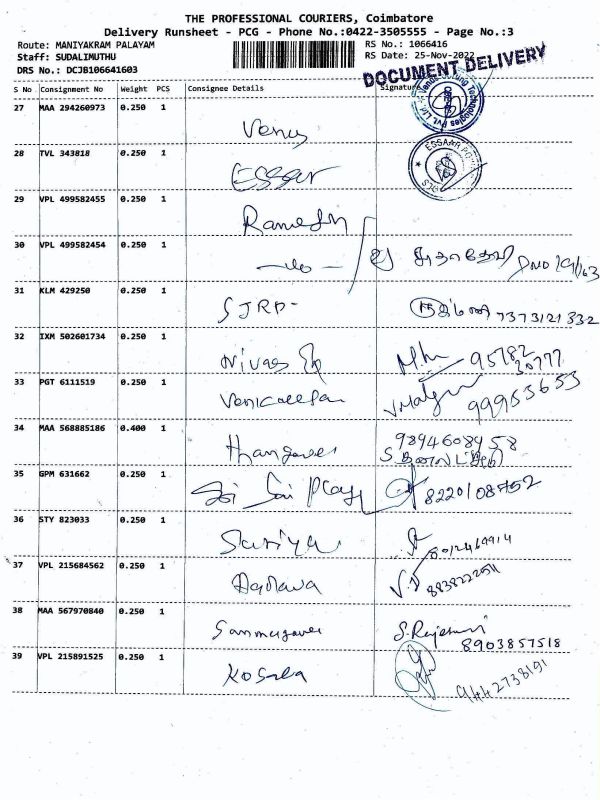 THE PROFESSIONAL COURIERS, Coimbatore
Delivery Runsheet - PCG - Phone No.:0422-3505555 - Page No.:3
Route: MANIYAKRAM PALAYAM
RS No.: 1066416
Staff: SUDALIMUTHU
RS Date: 25-Nov-2022
DRS No.: DCJB106641603
DOCUMENT DELIVERY
S No Consignment No Weight PCS Consignee Details Signature
27 MAA 294260973 0.250 1 Venus
28 TVL 343818 0.250 1 Essar
29 VPL 499582455 0.250 1 Ramesh
30 VPL 499582454 0.250 1
31 KLM 429250 0.250 1 SJRD- 7373121332
32 IXM 502601734 0.250 1 Nivas 95782
30777
33 PGT 6111519 0.250 1 99953653
34 MAA 568885186 0.400 1 Thangavel 9894608958
35 GPM 631662 0.250 1 Sri Sai Play 8220108752
36 STY 823033 0.250 1 Suriya
37 VPL 215684562 0.250 1
38 MAA 567970840 0.250 1 Sanmugavel S. Rajeswari
8903857518
39 VPL 215891525 0.250 1 Kosala 9442738191